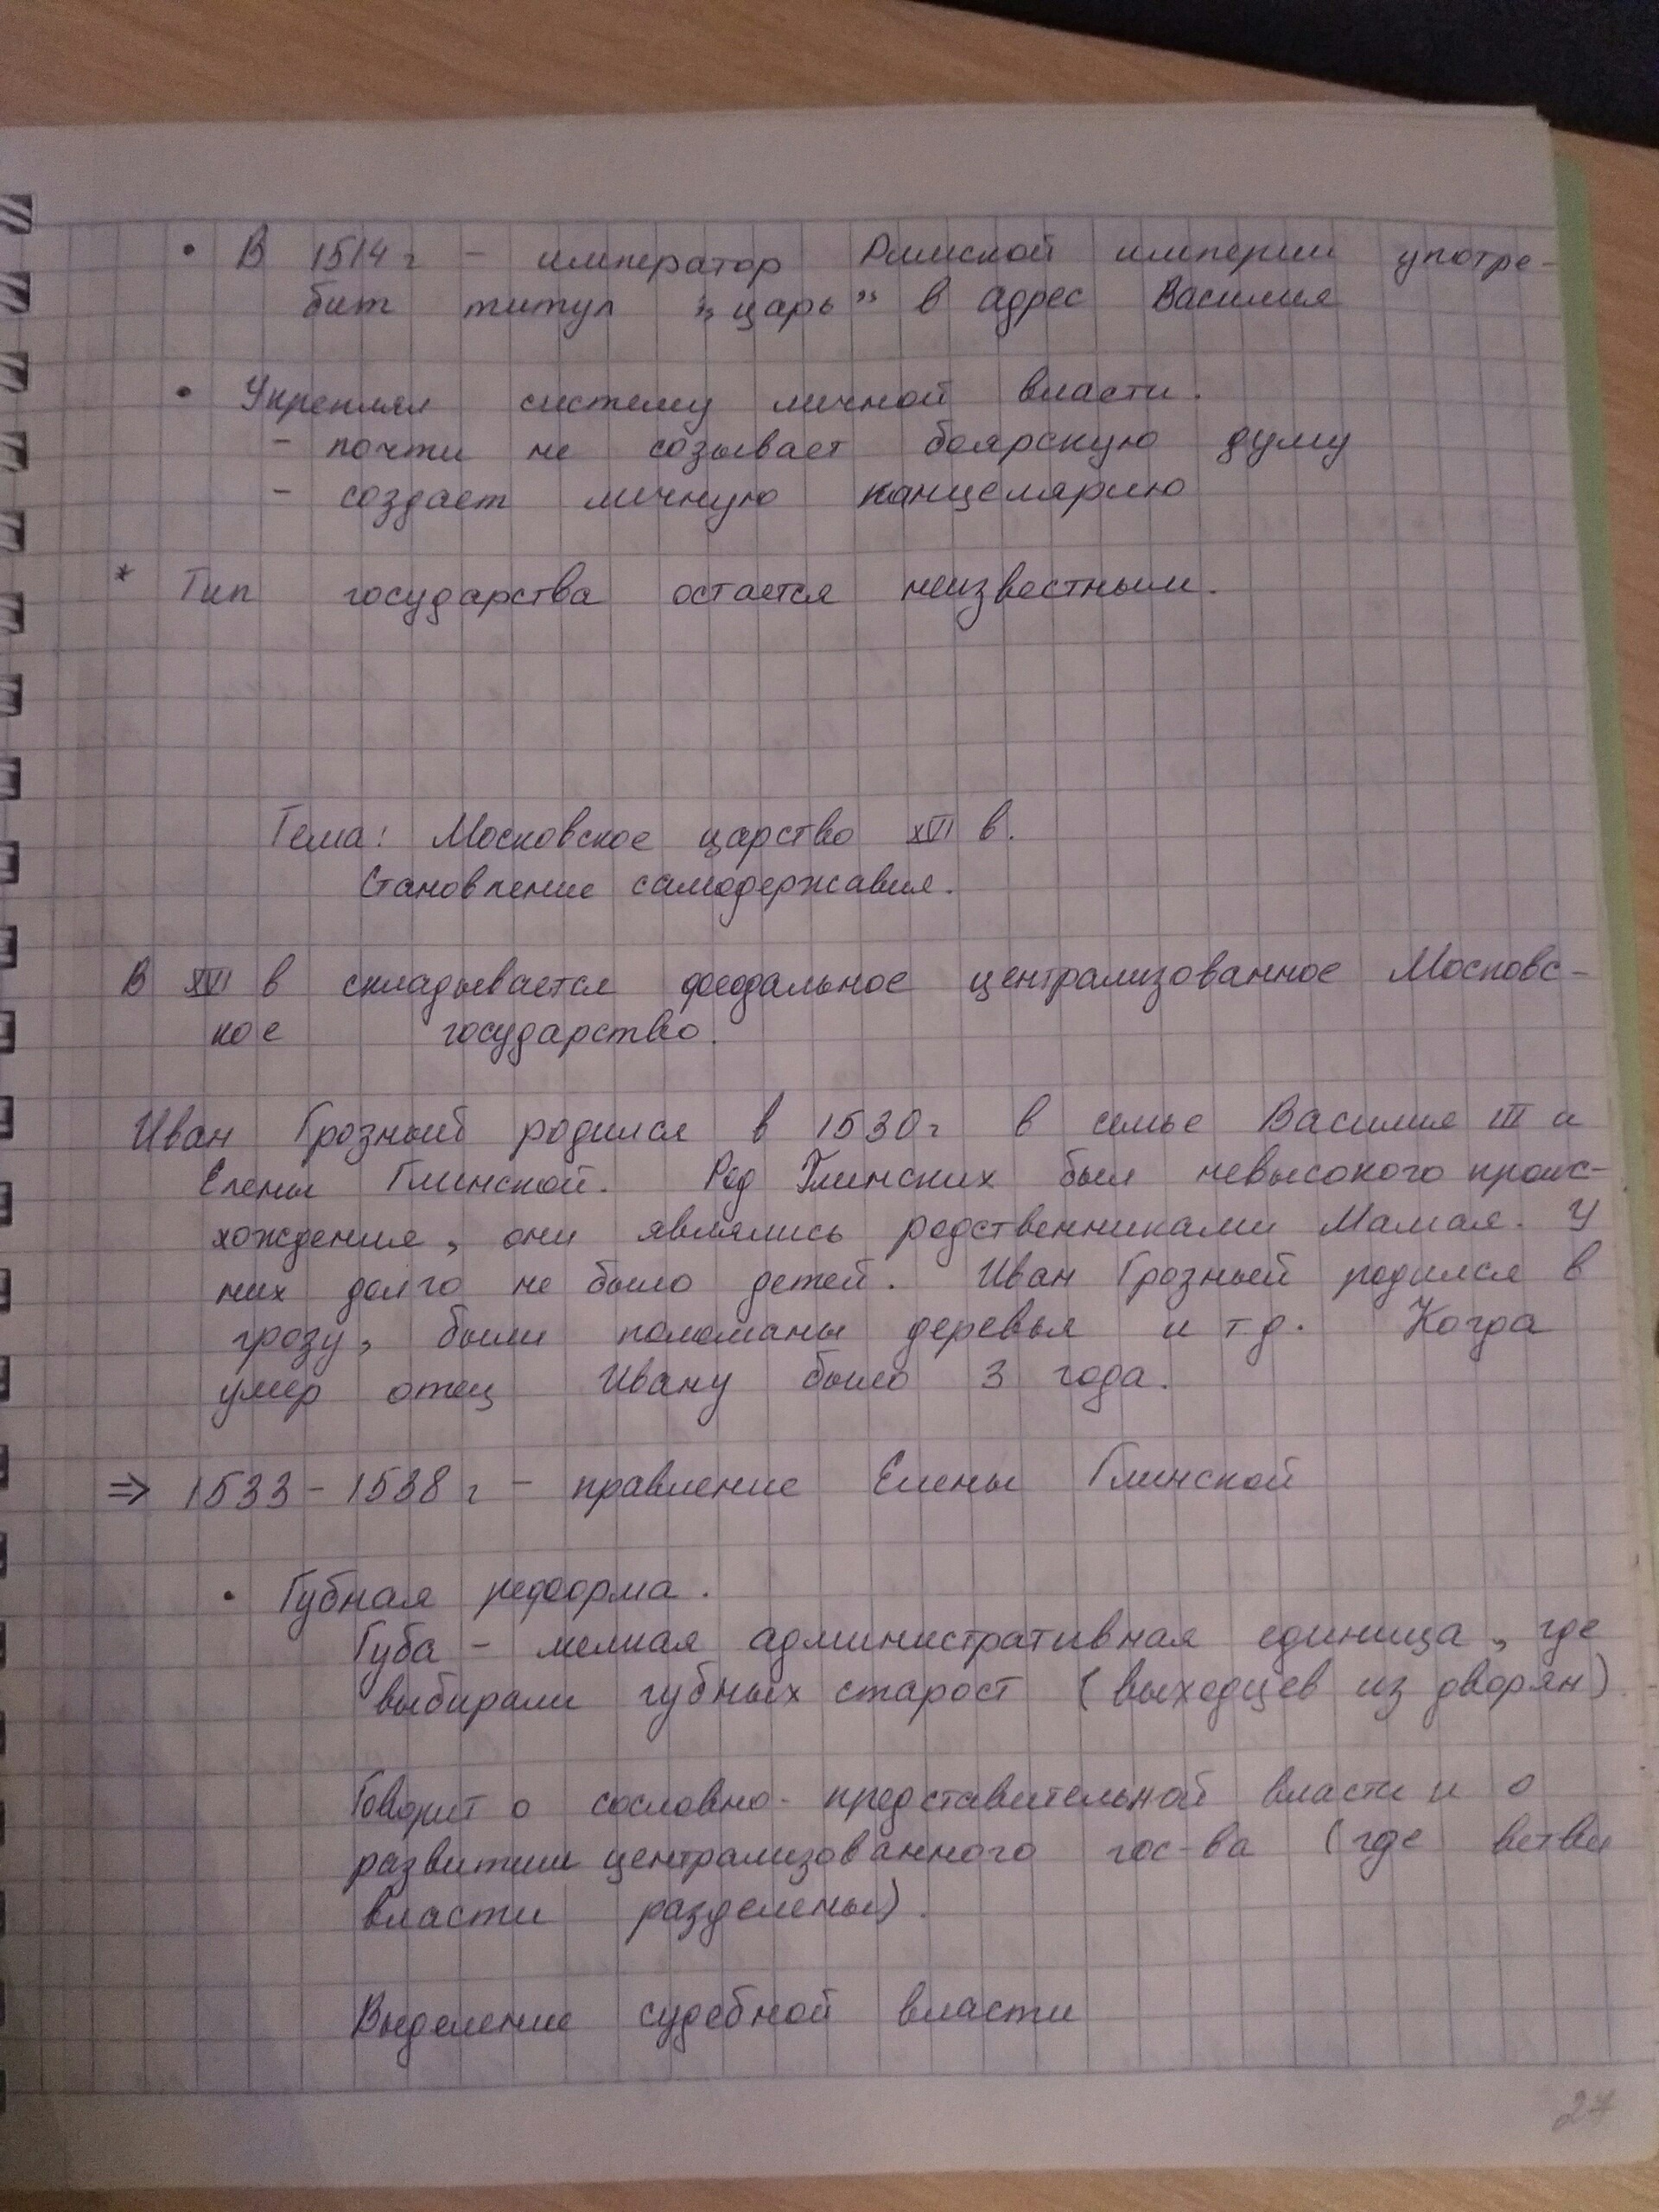 • В 1514 г - император Римской империи употре-
бит титул „царь” в адрес Василия
• Укреплял систему личной власти.
- почти не созывает боярскую думу
- создает личную канцелярию
* Тип государства остается неизвестным.
Тема: Московское царство XVI в.
Становление самодержавия.
В XVI в складывается феодальное централизованное Московс-
кое государство.
Иван Грозный родился в 1530 г в семье Василия III и
Елены Глинской. Род Глинских был невысокого проис-
хождения, они являлись родственниками Мамая. У
них долго не было детей. Иван Грозный родился в
грозу, были поломаны деревья и т.д. Когда
умер отец Ивану было 3 года.
⇒ 1533 - 1538 г - правление Елены Глинской
• Губная реформа.
Губа - мелкая административная единица, где
выбирали губных старост (выходцев из дворян)
Говорит о сословно-представительной власти и о
развитии централизованного гос-ва (где ветви
власти разделены).
Выделение судебной власти
27